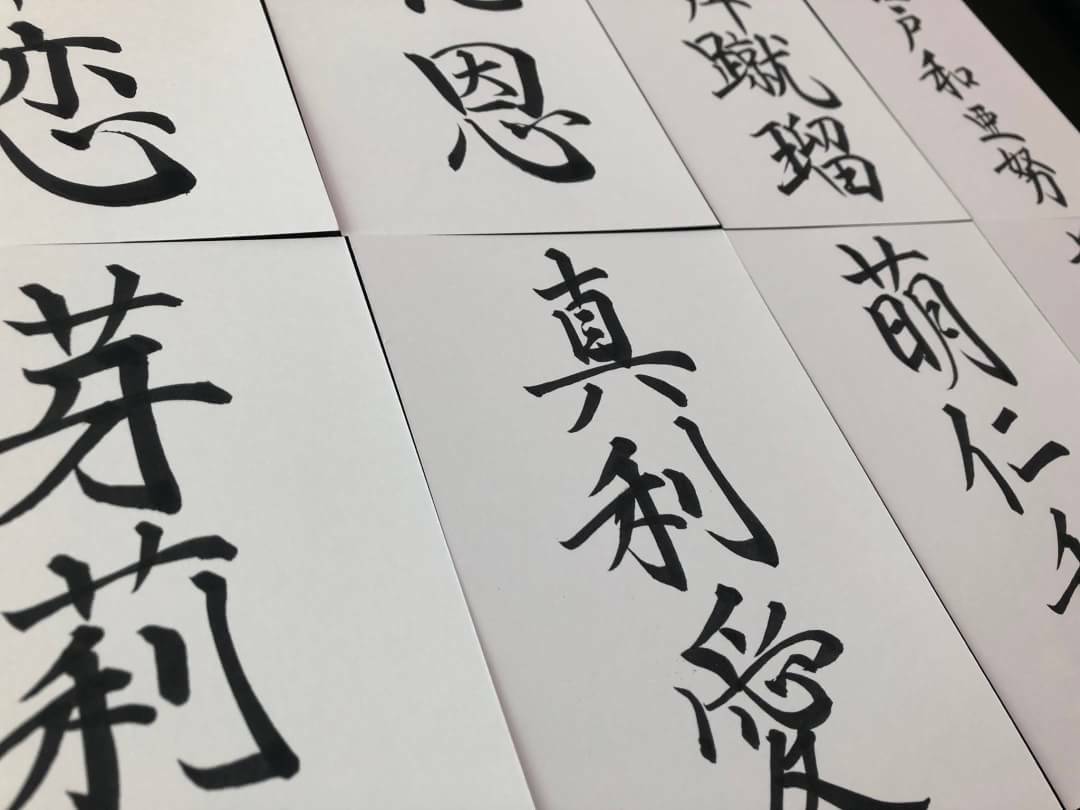 恋
恩
蹴瑠
戸和亜努
芽莉
真利愛
萌仁